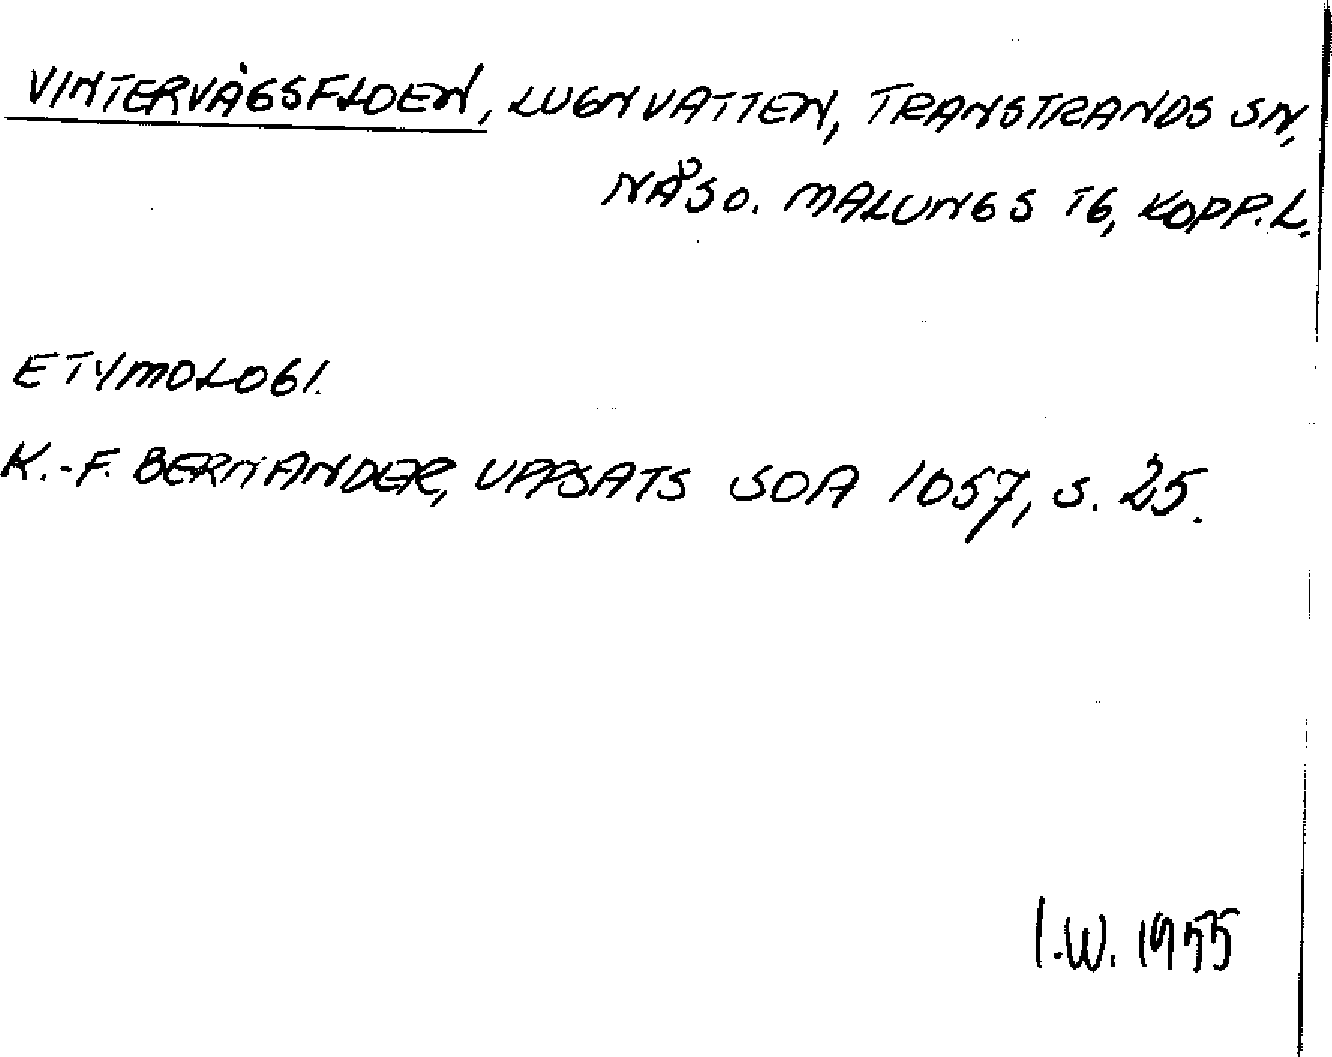 VINTERVÄGSFLOEN, LUGNVATTEN, TRANSTRANDS SN,
NÄS O. MALUNGS TG, KOPP. L.
ETYMOLOGI.
K.-F. BERNANDER, UPPSATS SOA 1057, S. 25.
I.W. 1955